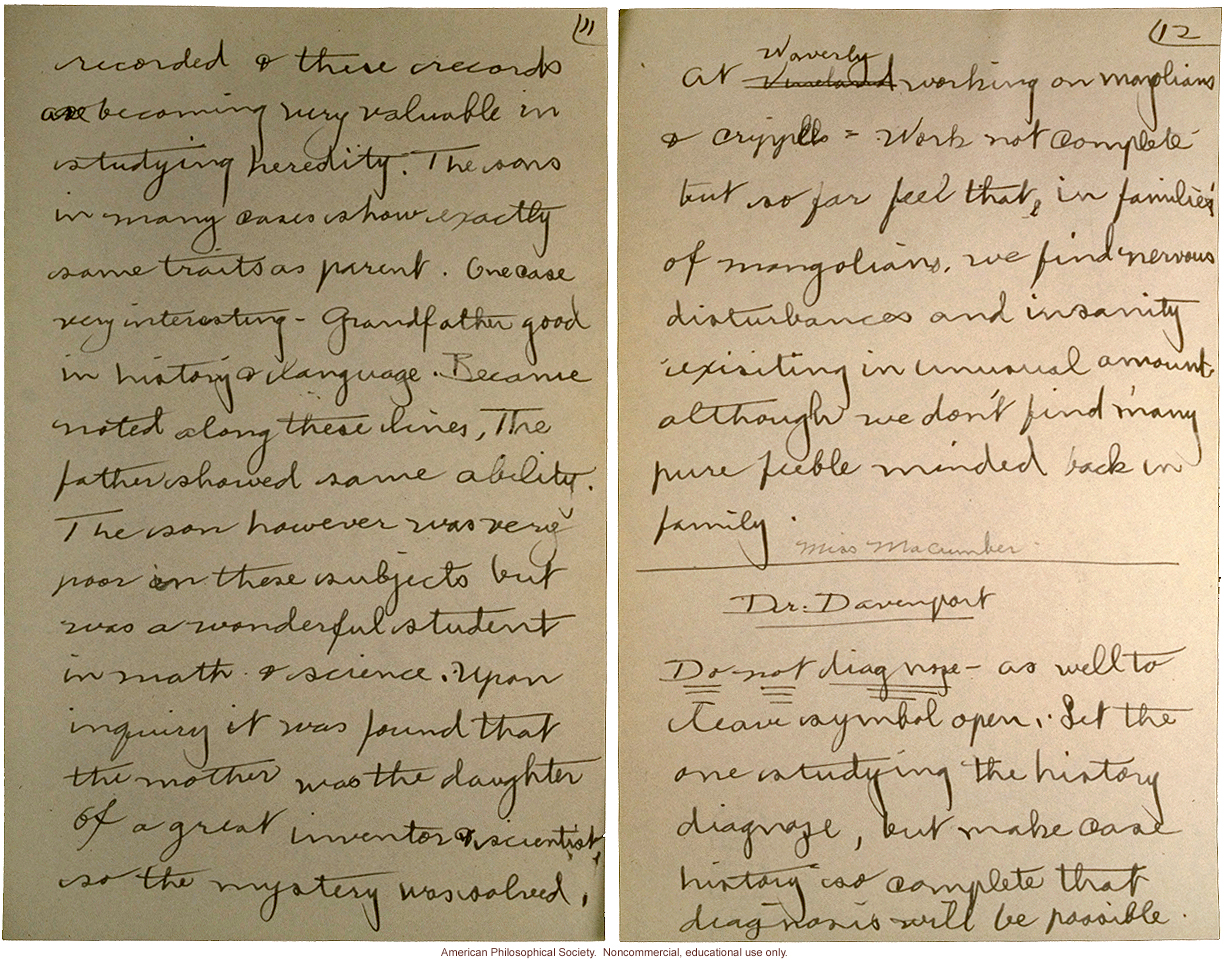 11
recorded & these records
are becoming very valuable in
studying heredity. The sons
in many cases show exactly
same traits as parent. One case
very interesting - Grandfather good
in history & language. Became
noted along these lines, The
father showed same ability.
The son however was very
poor in these subjects but
was a wonderful student
in math. & science. Upon
inquiry it was found that
the mother was the daughter
of a great inventor & scientist,
so the mystery was solved.
12
Waverly
At Vineland working on mongolians
& cripples = Work not complete
but so far feel that, in families
of mongolians, we find nervous
disturbances and insanity
exisiting in unusual amount
although we don't find many
pure feeble minded back in
family.
Miss Macumber
Dr. Davenport
Do not diagnose - as well to
leave symbol open. Let the
one studying the history
diagnose, but make case
history so complete that
diagnosis will be possible.
American Philosophical Society. Noncommercial, educational use only.